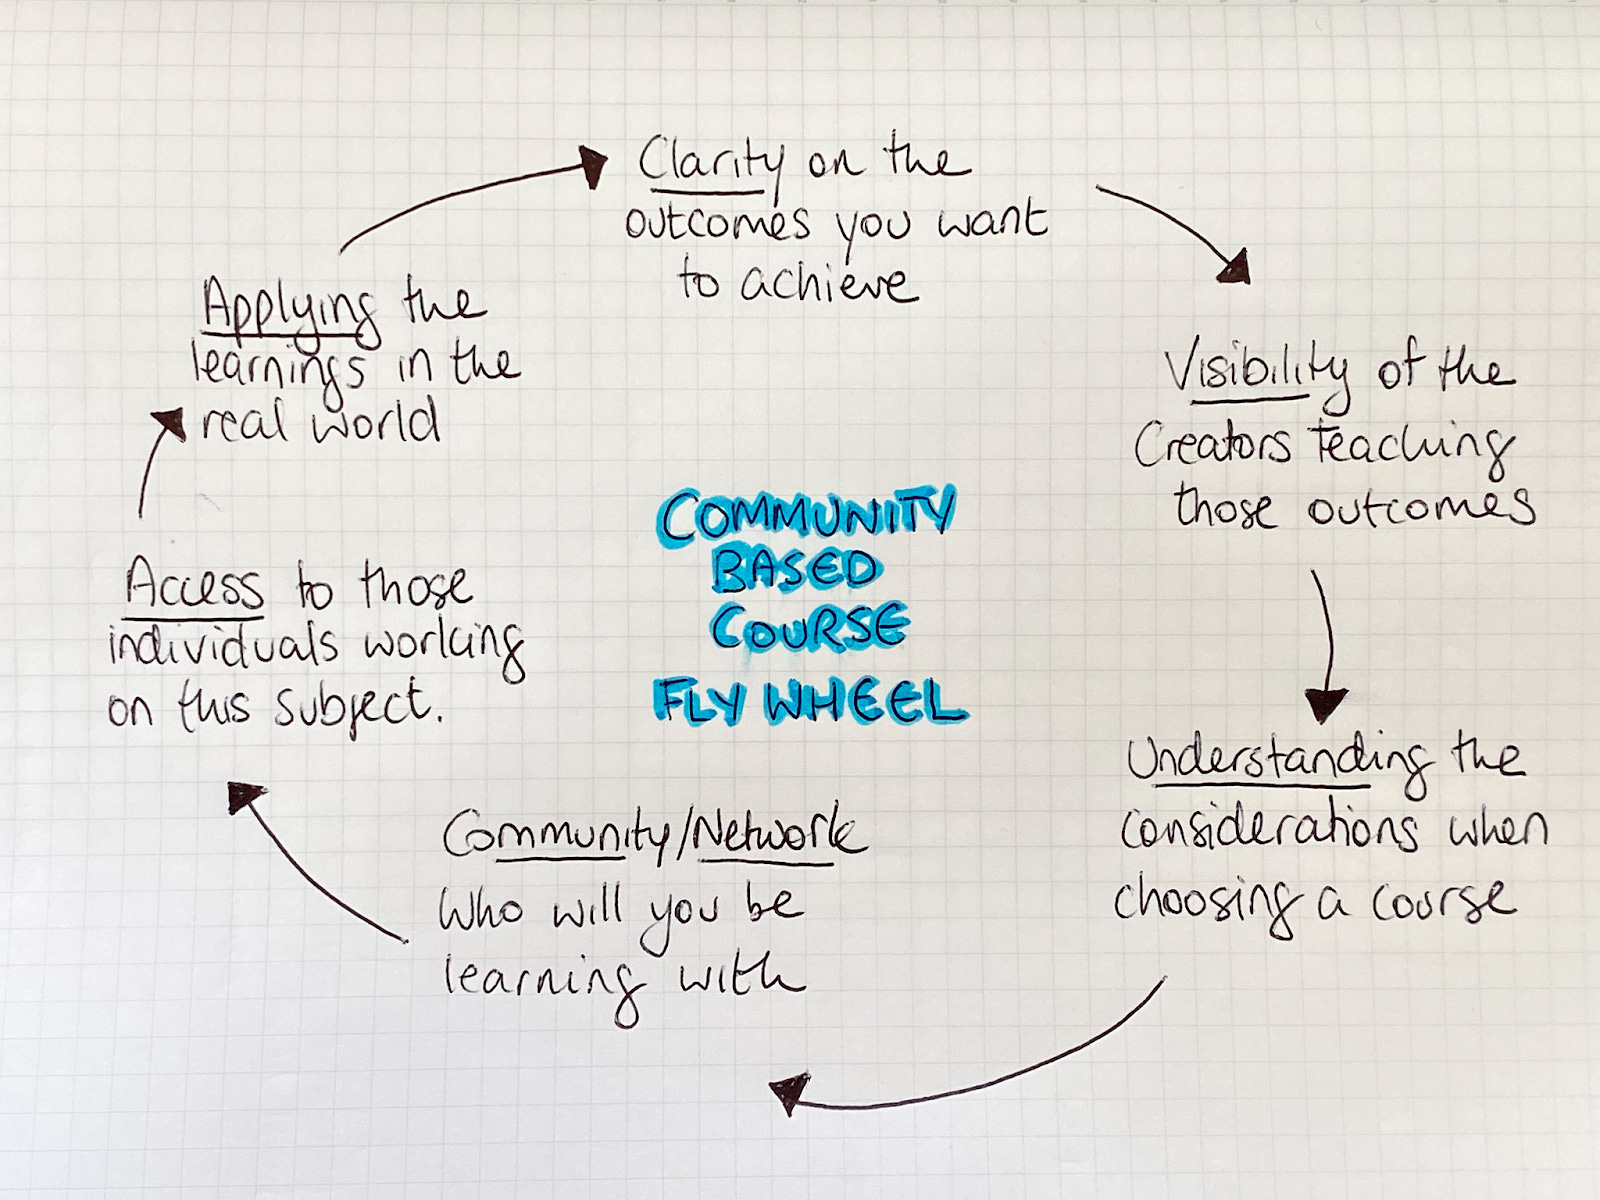 Clarity on the
outcomes you want
to achieve
Visibility of the
Creators teaching
those outcomes
Understanding the
considerations when
choosing a course
Community/Network
Who will you be
learning with
Access to those
individuals working
on this subject.
Applying the
learnings in the
real world
COMMUNITY
BASED
COURSE
FLY WHEEL